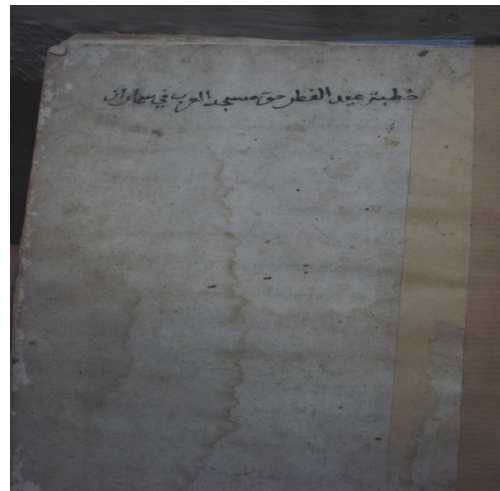 خطبة عيد الفطر حق مسجد العرب في سماراڠ